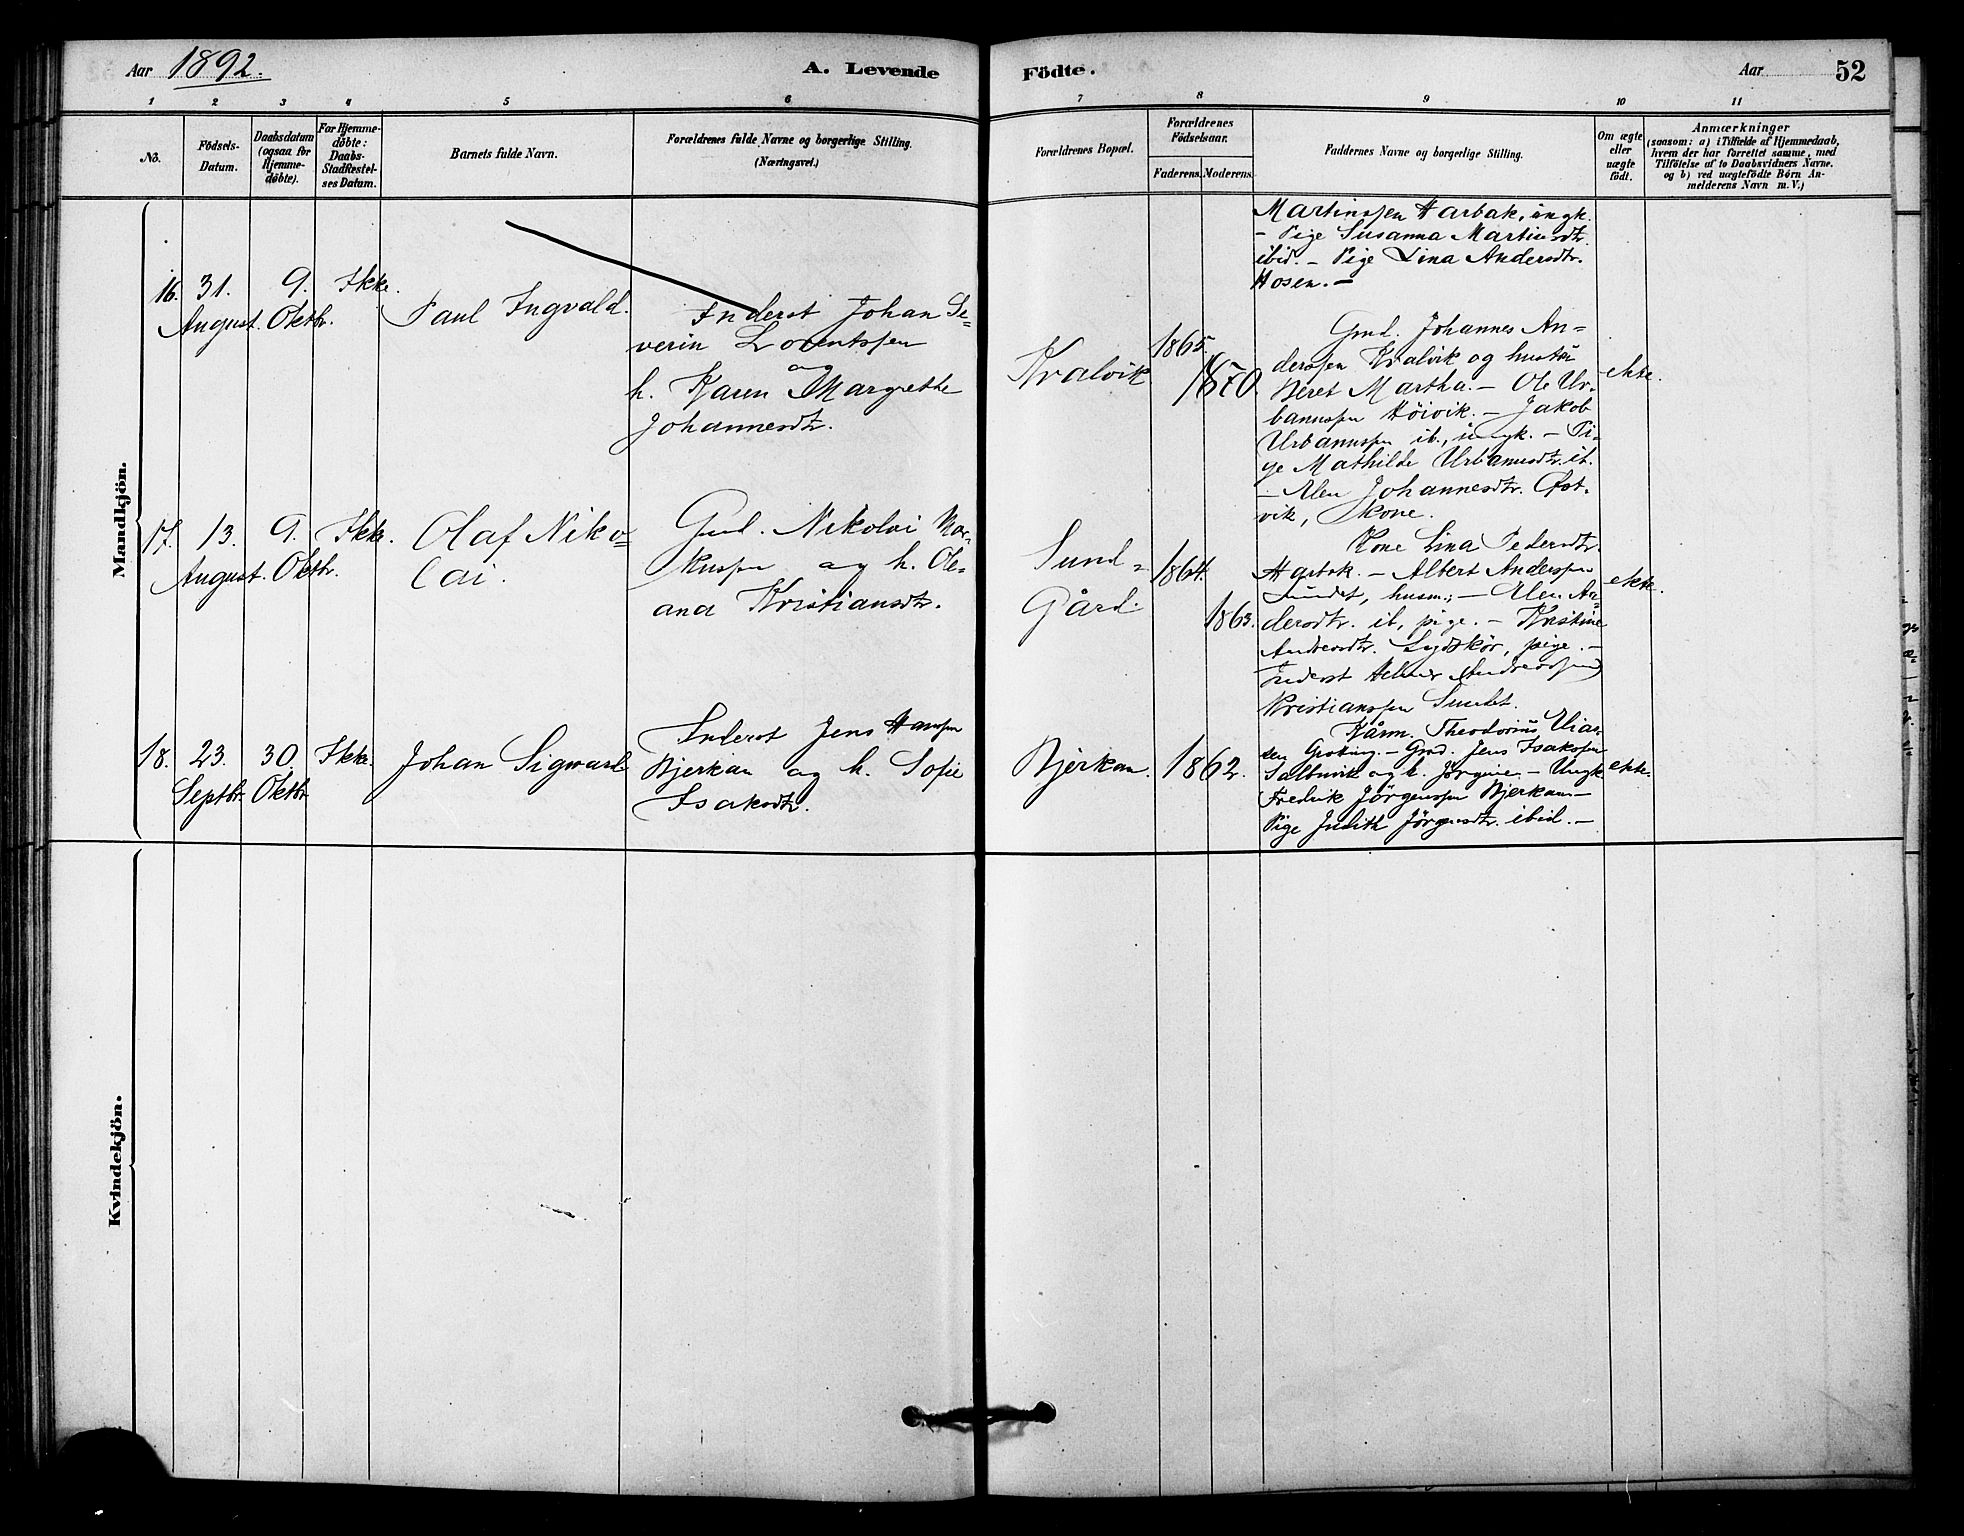 Aar 1892.
A. Levende
Födte.
Aar
52
1 2 3 4 5 6 7 8 9 10 11
No.
Födsels-
Datum.
Daabsdatum
(ogsaa for
Hjemme-
döbte).
For Hjemme-
döbte:
Daabs-
Stadfæstel-
ses Datum.
Barnets fulde Navn.
Forældrenes fulde Navne og borgerlige Stilling.
(Næringsvei.)
Forældrenes Bopæl.
Forældrenes
Födselsaar.
Faderens. Moderens.
Faddernes Navne og borgerlige Stilling.
Om ægte
eller
uægte
födt.
Anmærkninger
(saasom: a) i Tilfælde af Hjemmedaab,
hvem der har forrettet samme, med
Tilföielse af to Daabsvidners Navne.
og b) ved uægtefödte Börn An-
melderens Navn m. V.)
Mandkjön.
Martinssen Harbak, ungk.
- Pige Susanna Martinsdtr.
ibid. - Pige Lina Andersdtr.
Hosen. -
16. 31. 9. Ikke.
August. Oktbr.
Paul Ingvald.
Inderst Johan Se-
verin Lorentssen
og
h. Karen Margrethe
Johannesdtr.
Kralvik
1865.
1870.
Gmd. Johannes An-
derssen Kralvik og hustru
Beret Martha. - Ole Ur-
banussen Höivik. - Jakob
Urbanussen ib., ungk. - Pi-
ge Mathilde Urbanusdtr. ib.
- Elen Johannesdtr. Öst-
vik, kone.
ekte.
17. 13. 9. Ikke.
August. Oktbr.
Olaf Niko-
lai.
Gmd. Nikolai Mar-
kussen og h. Ole-
ana Kristiansdtr.
Sund-
Gård.
1864.
1863.
Kone Lina Pedersdtr.
Harbak. - Albert Anderssen
Sundet, husm.; - Elen An-
dersdtr. ib, pige. - Kristine
Andreasdtr. Sydskör, pige. -
Inderst Helmer Andreassen
Kristianssen Sundet.
ekte.
18. 23. 30. Ikke.
Septbr. Oktbr.
Johan Sigvard
Inderst Jens Hanssen
Bjerkan og h. Sofie
Isaksdtr.
Bjerkan.
1862.
Kårm. Theodorius Elias-
sen Grøting. - Gmd. Jens Isaksen
Saltbuvik og h. Jörgine. - Ungk.
Fredrik Jörgenssen Bjerkan -
Pige Judith Jörgensdtr. ibid. -
ekte.
Kvindekjön.